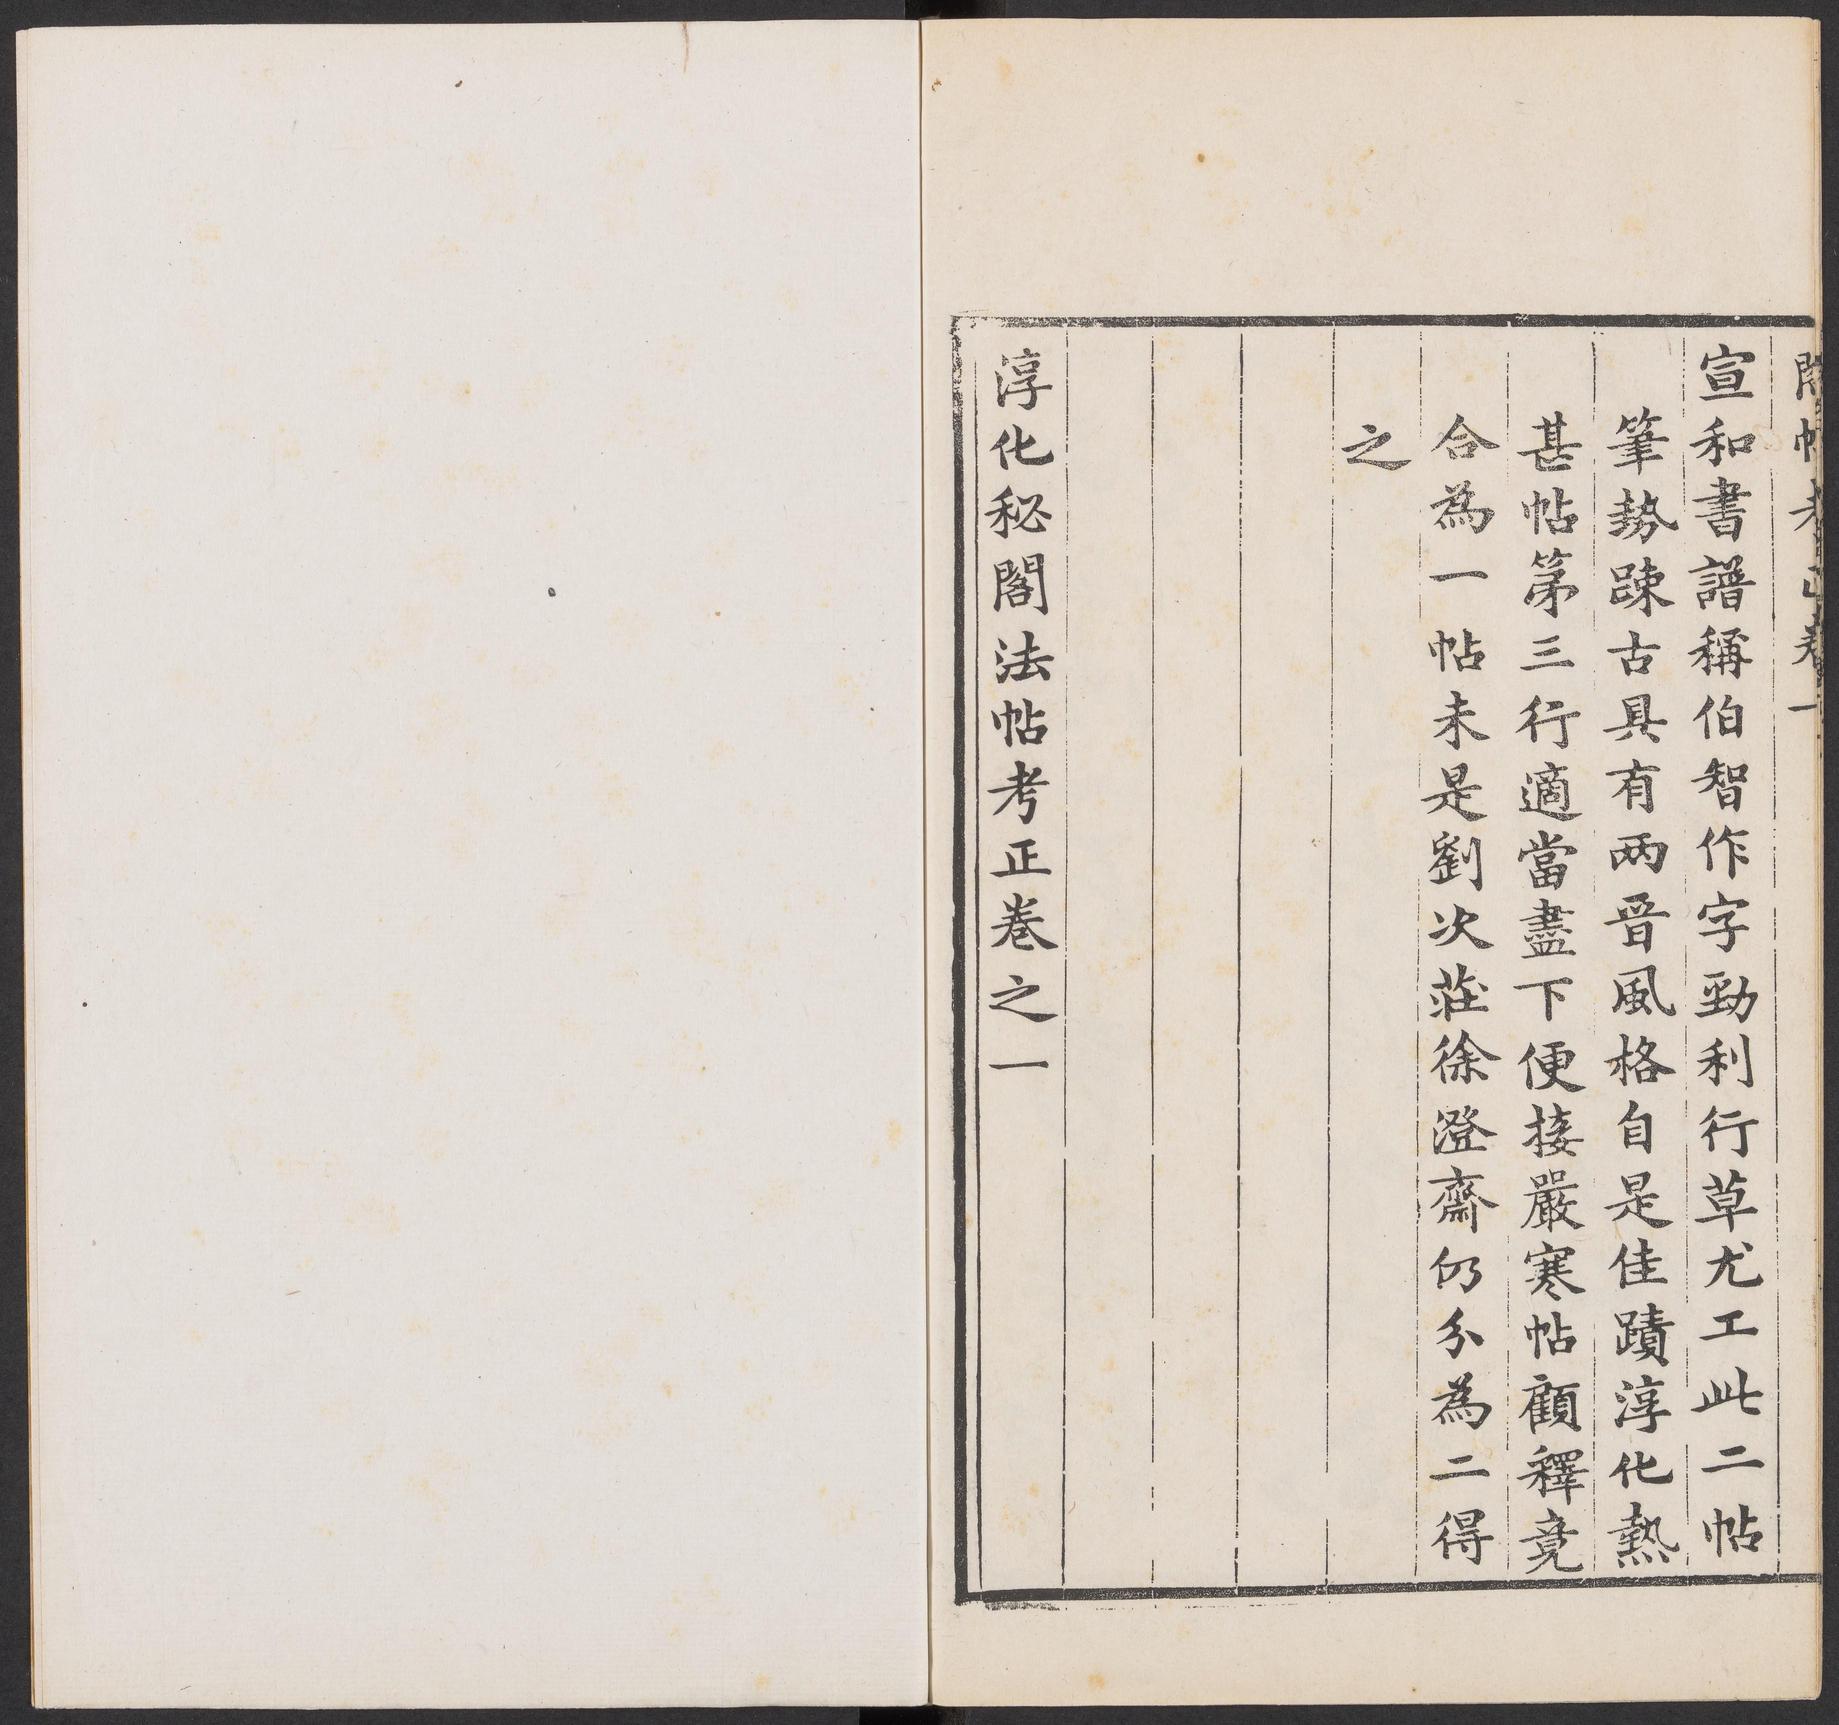 閣帖考正卷一
宣和書譜稱伯智作字勁利行草尤工此二帖
筆勢踈古具有两晋風格自是佳蹟淳化熱
甚帖第三行適當盡下便接嚴寒帖顧釋竟
合為一帖未是劉次莊徐澄齋仍分為二得
之
淳化秘閣法帖考正卷之一